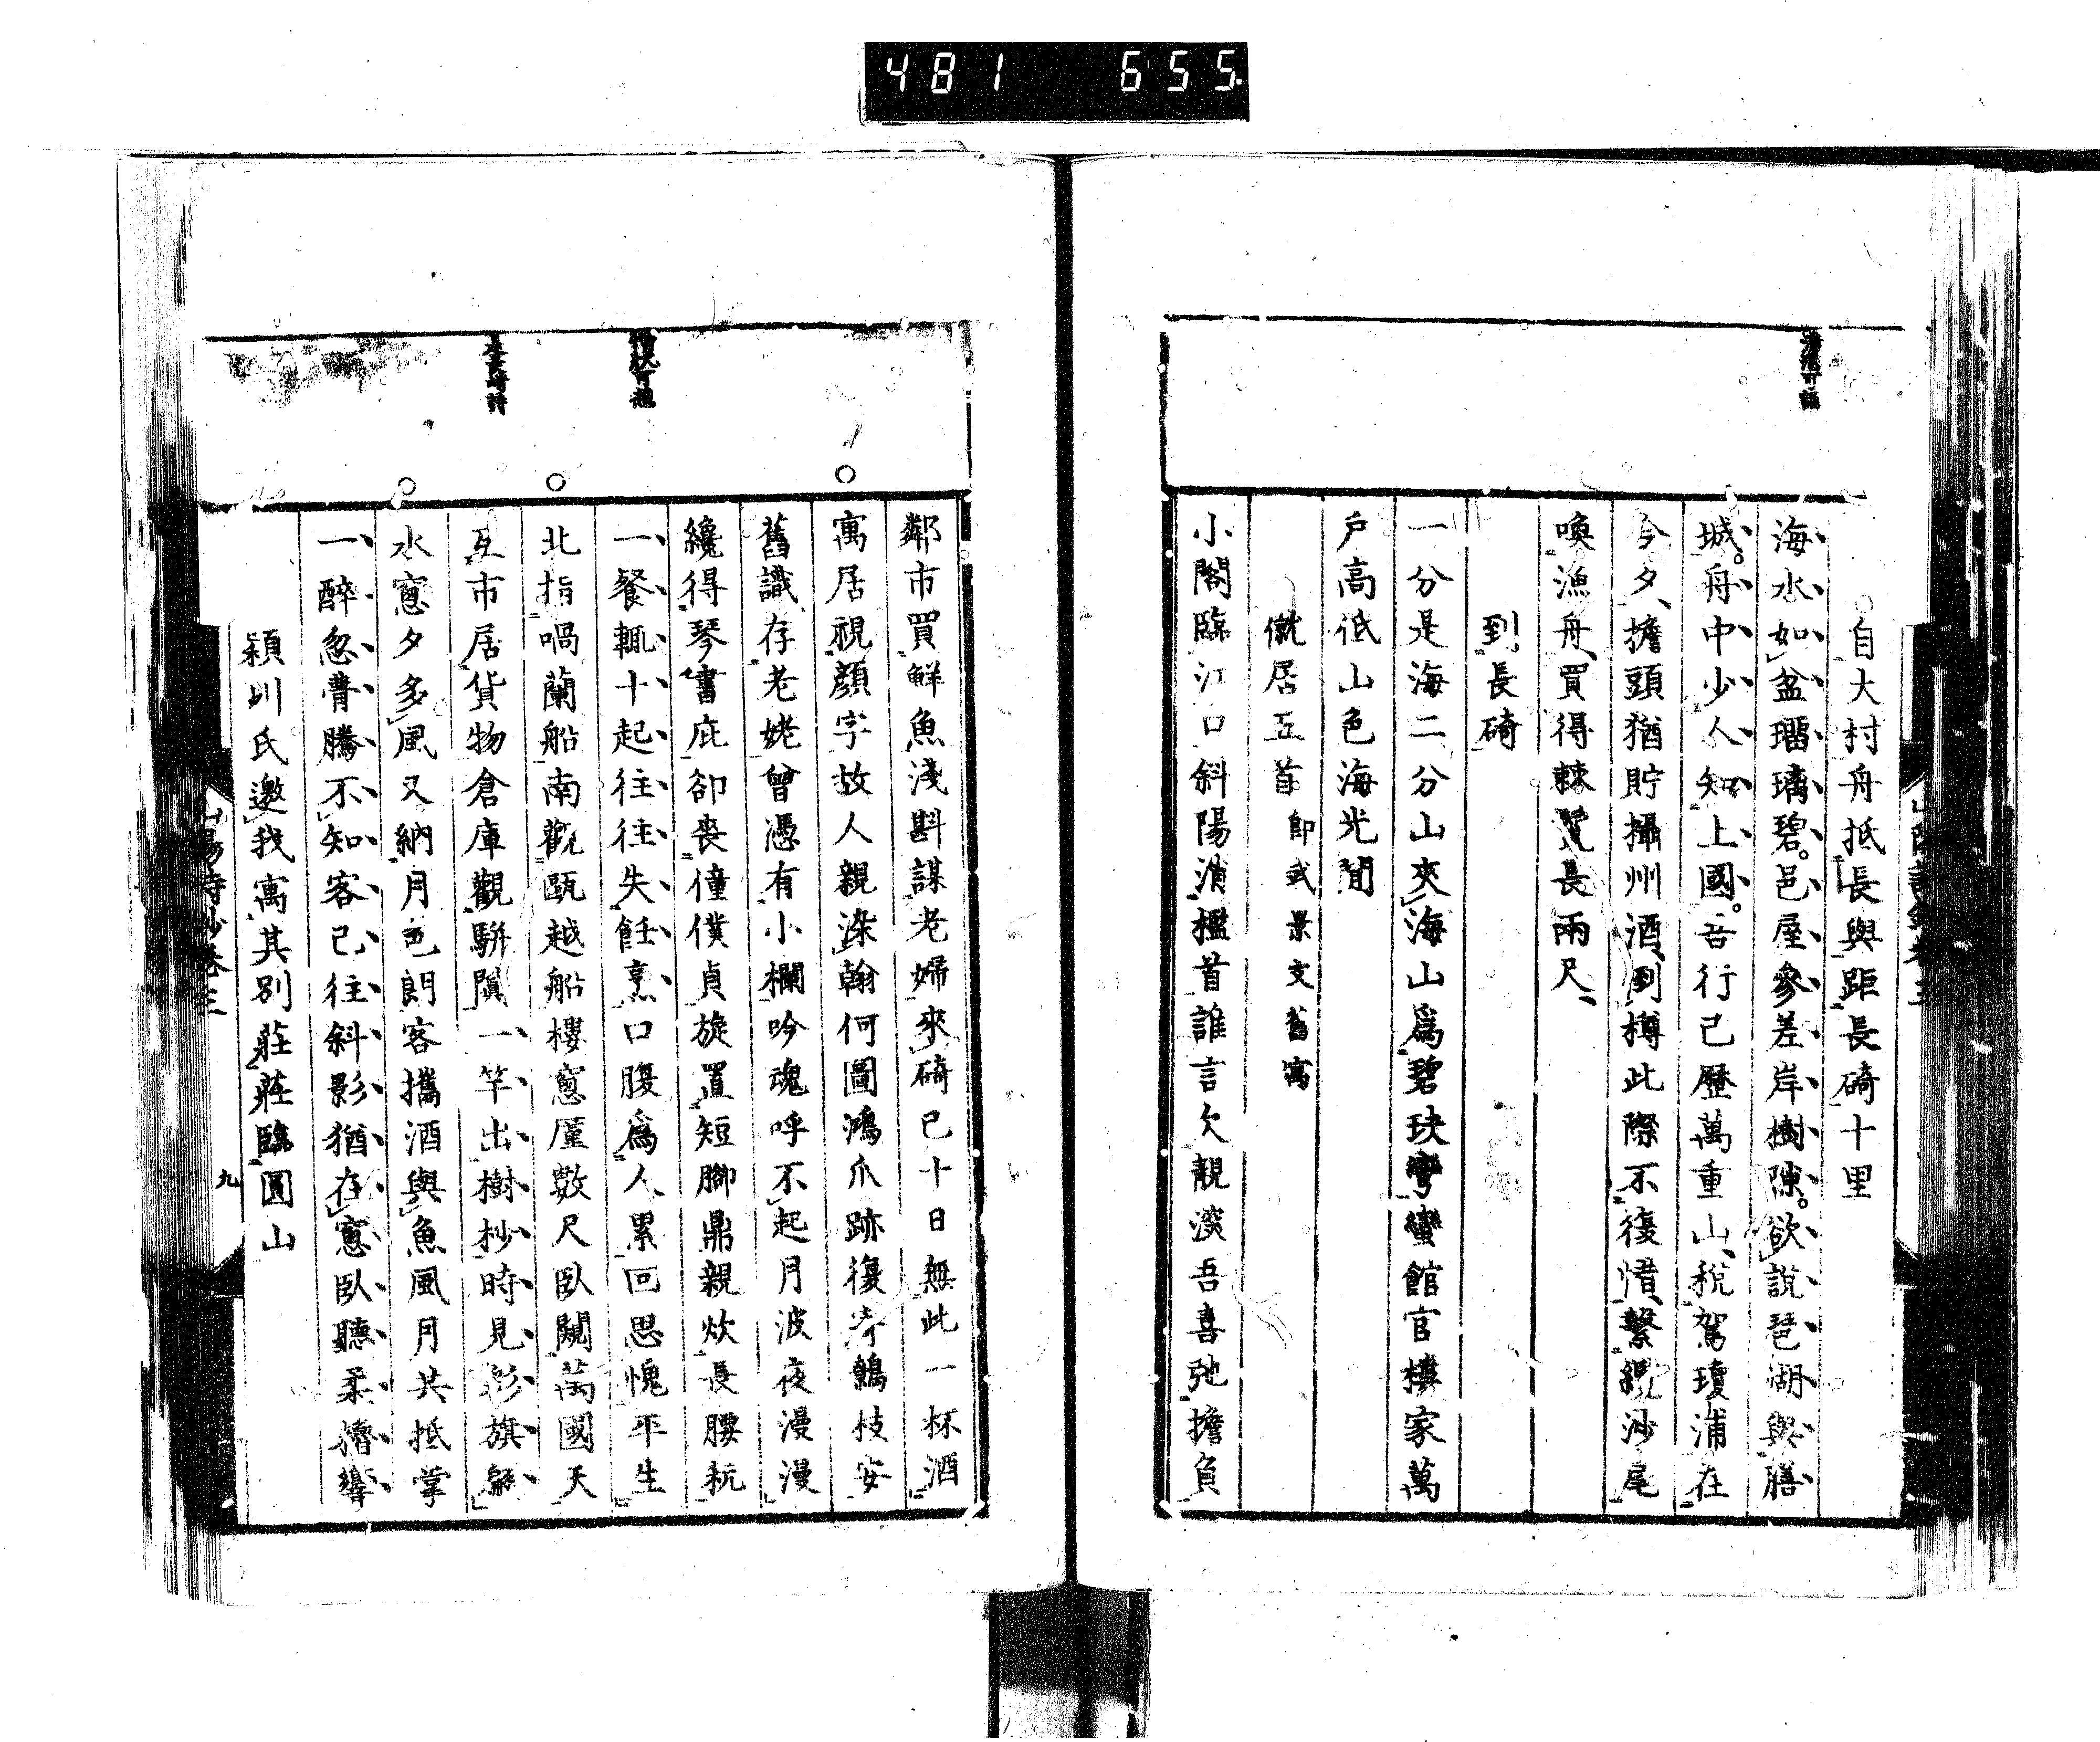 481 655
自大村舟抵長與距長碕十里
海水如盆瑠璃碧邑屋參差岸樹隙欲說琶湖與膳
城舟中少人知上國吾行已歷萬重山稅駕瓊浦在
今夕擔頭猶貯攝州酒到樽此際不復惜繫纜沙尾
喚漁舟買得棘鬣長兩尺
到長碕
一分是海二分山夾海山爲碧玦彎蠻館官樓家萬
戶高低山色海光間
僦居五首 即武景文舊寓
小閣臨江口斜陽滿檻首誰言欠靚深吾喜弛擔負
鄰市買鮮魚淺斟謀老婦來碕已十日無此一杯酒
寓居視顏字故人親染翰何圖鴻爪跡復寄鷦枝安
舊識存老姥曾憑有小欄吟魂呼不起月波夜漫漫
纔得琴書庇卻喪僮僕貞旋置短腳鼎親炊長腰秔
一餐輒十起往往失飪烹口腹爲人累回思愧平生
北指喎蘭船南觀甌越船樓窻廑數尺臥閱萬國天
互市居貨物倉庫觀駢闐一竿出樹杪時見彩旗懸
水窻夕多風又納月色朗客攜酒與魚風月共抵掌
一醉忽瞢騰不知客已往斜影猶在窻臥聽柔櫓響
潁川氏邀我寓其別莊莊臨圓山
山陽詩鈔卷三
九